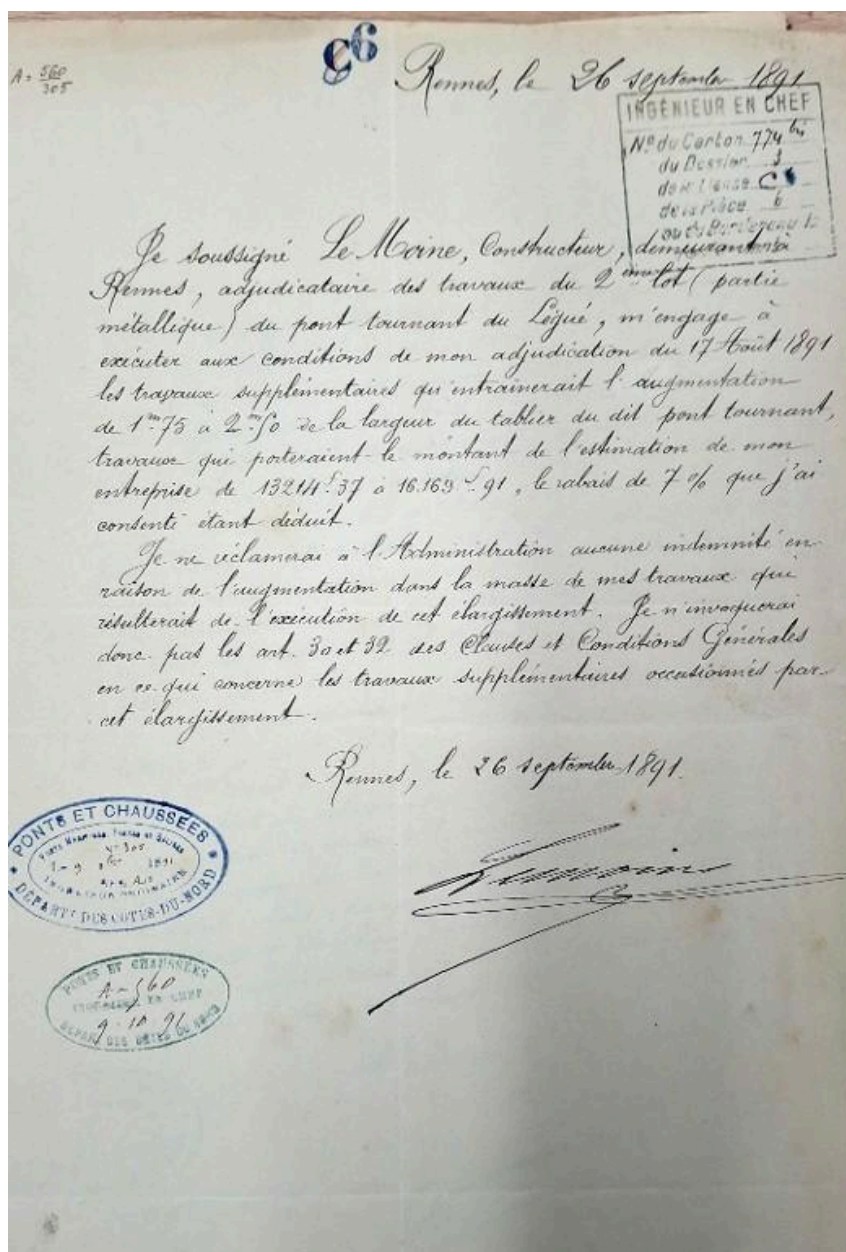 C6
A = 560/305
Rennes, le 26 septembre 1891
INGÉNIEUR EN CHEF
N° du Carton 774 bis
du Dossier 3
de la Liasse C
de la Pièce 6
ou du Bordereau
Je soussigné Le Moine, Constructeur, demeurant à
Rennes, adjudicataire des travaux du 2ème lot (partie
métallique) du pont tournant du Légué, m'engage à
exécuter aux conditions de mon adjudication du 17 Août 1891
les travaux supplémentaires qu'entraînerait l'augmentation
de 1m75 à 2m50 de la largeur du tablier du dit pont tournant,
travaux qui porteraient le montant de l'estimation de mon
entreprise de 13214f.37 à 16.163f.91, le rabais de 7 % que j'ai
consenti étant déduit.
Je ne réclamerai à l'Administration aucune indemnité en
raison de l'augmentation dans la masse de mes travaux qui
résulterait de l'exécution de cet élargissement. Je n'invoquerai
donc pas les art. 30 et 32 des Clauses et Conditions Générales
en ce qui concerne les travaux supplémentaires occasionnés par
cet élargissement.
Rennes, le 26 septembre 1891.
Lemoine
PONTS ET CHAUSSÉES
N° 305
1891
INGÉNIEUR ORDINAIRE
DÉPARTt DES CÔTES-DU-NORD
PONTS ET CHAUSSÉES
A-560
INGÉNIEUR EN CHEF
9-10-91
DÉPART. DES CÔTES DU NORD